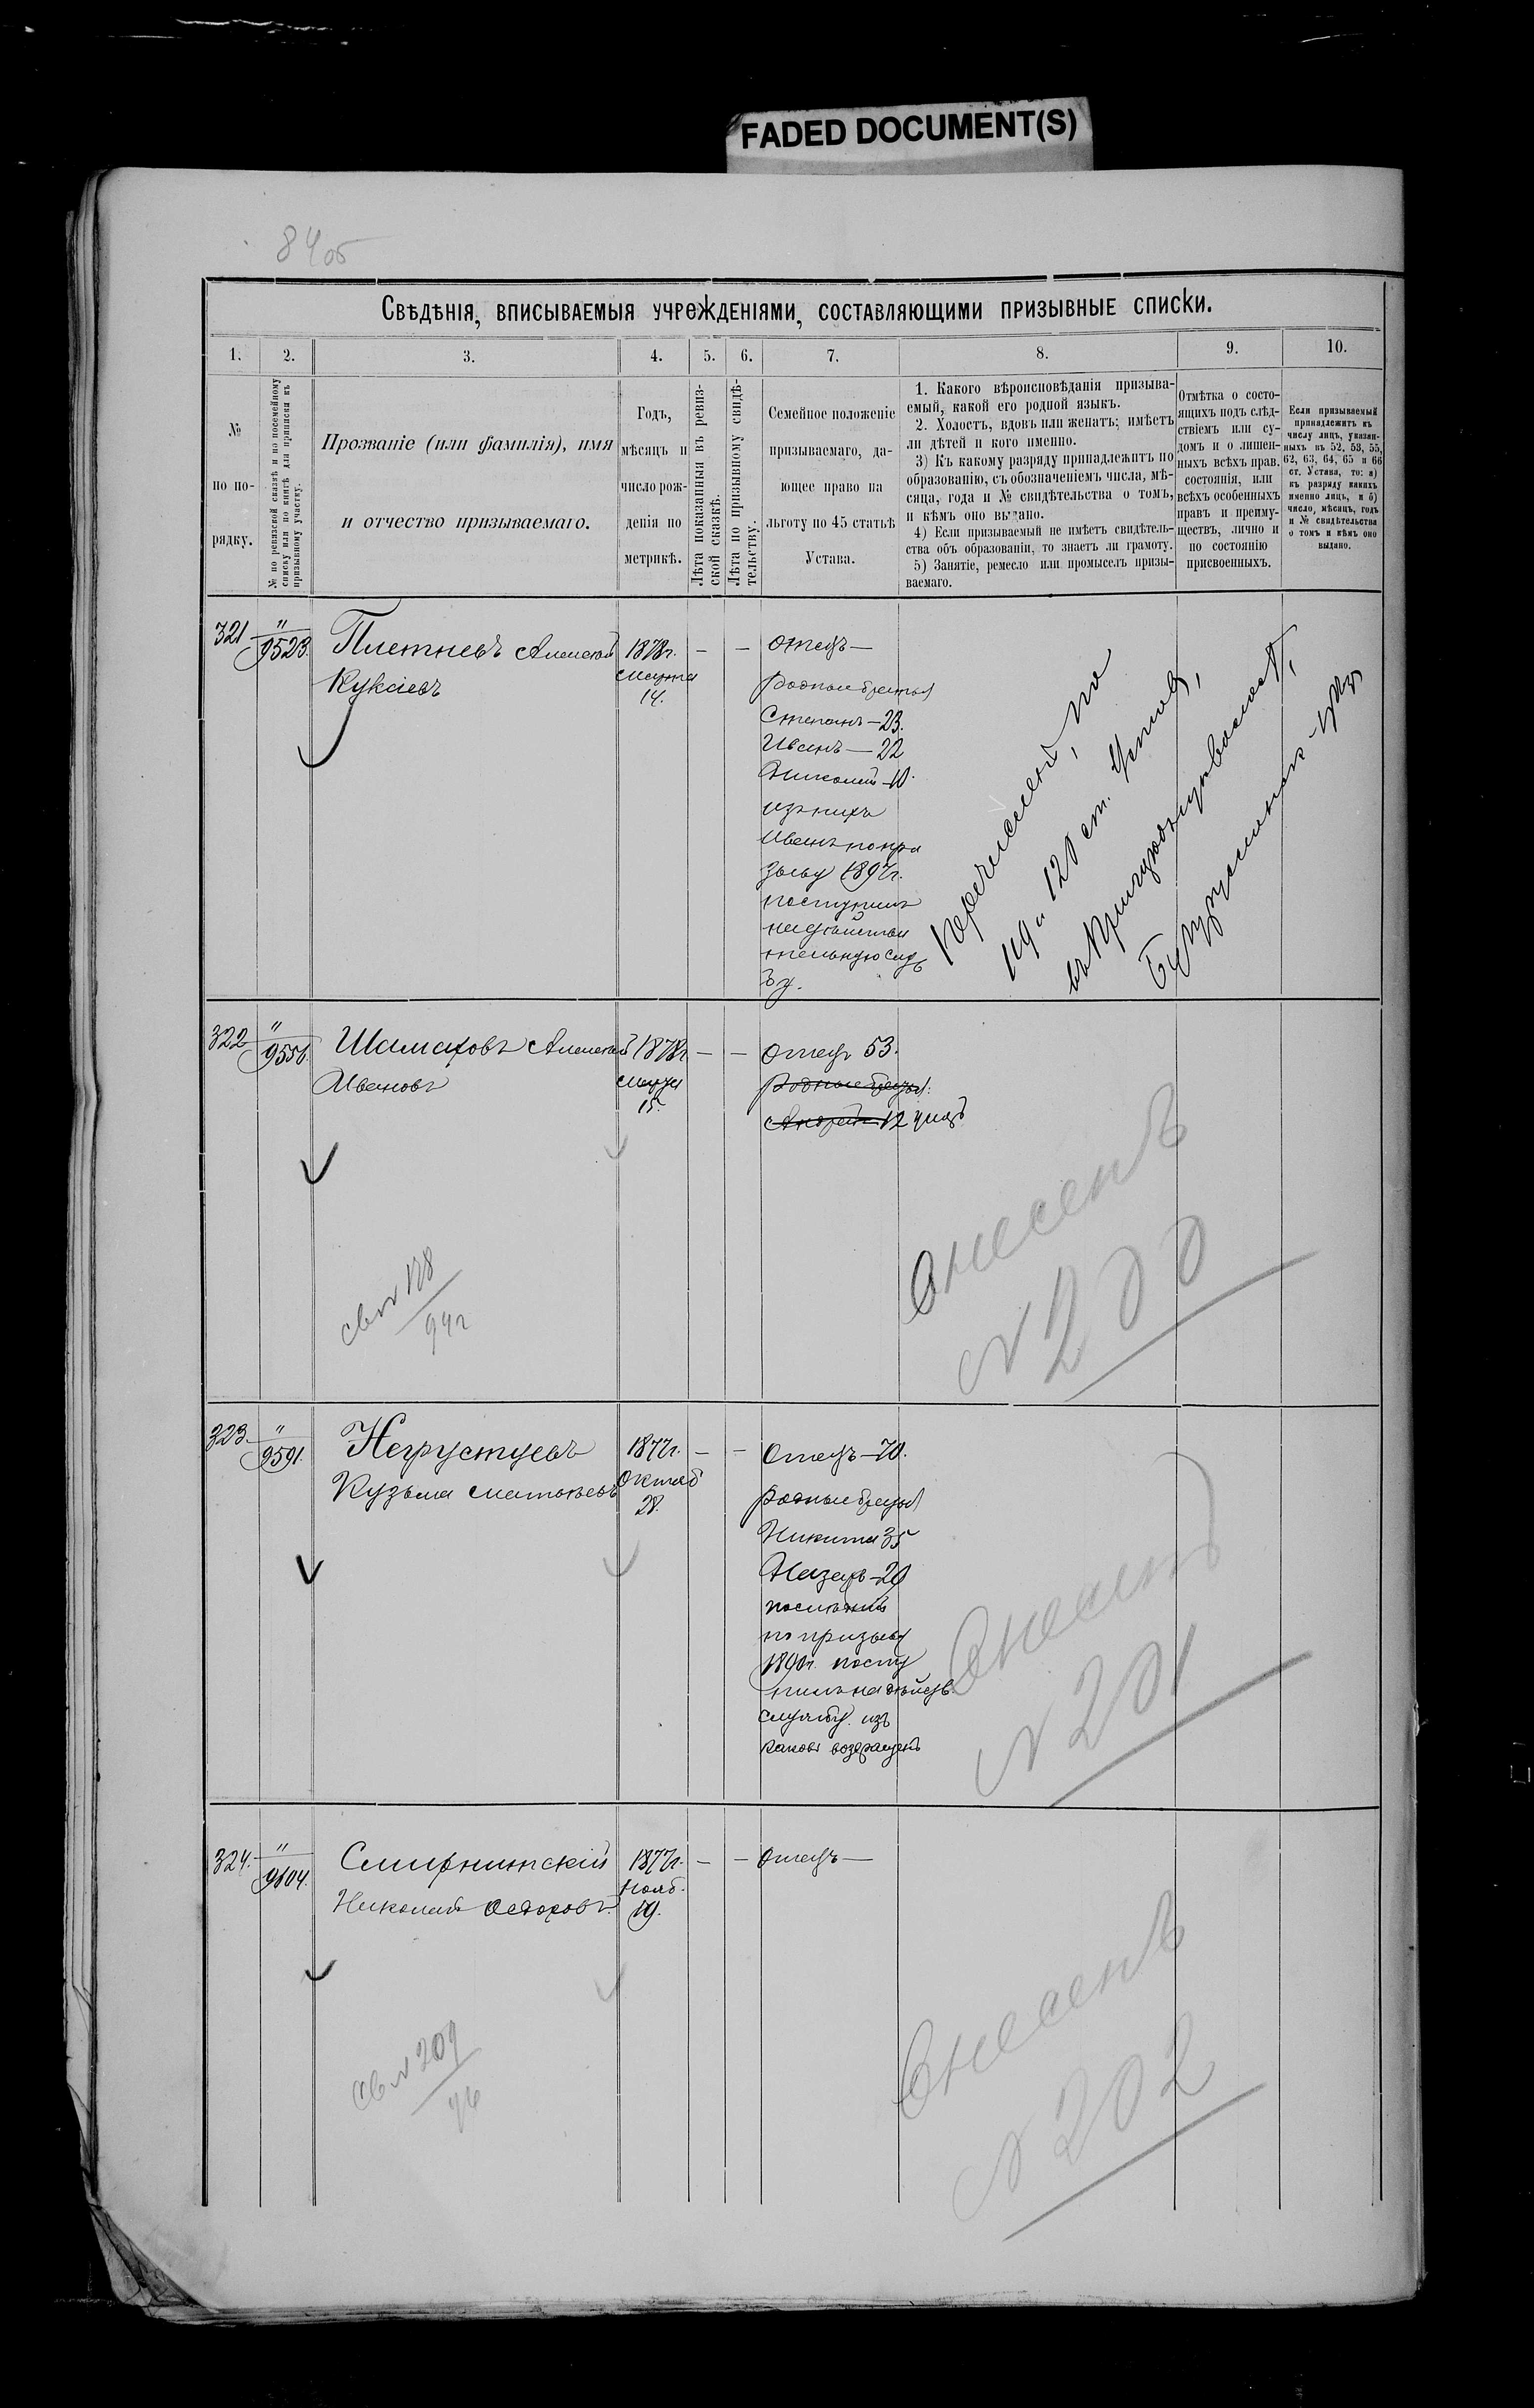 FADED DOCUMENT(S)
Свѣдѣнія, вписываемыя учрежденіями, составляющими призывные списки.
1. 2. 3. 4. 5. 6. 7. 8. 9. 10.
№
по по-
рядку.
№ по ревизской сказкѣ и по посемейному
списку или по книгѣ для приписки къ
призывному участку.
Прозваніе (или фамилія), имя
и отчество призываемаго.
Годъ,
мѣсяцъ и
число рож-
денія по
метрикѣ.
Лѣта показанныя въ ревиз-
ской сказкѣ.
Лѣта по призывному свидѣ-
тельству.
Семейное положеніе
призываемаго, да-
ющее право на
льготу по 45 статьѣ
Устава.
1. Какого вѣроисповѣданія призыва-
емый, какой его родной языкъ.
2. Холостъ, вдовъ или женатъ; имѣетъ
ли дѣтей и кого именно.
3) Къ какому разряду принадлежитъ по
образованію, съ обозначеніемъ числа, мѣ-
сяца, года и № свидѣтельства о томъ,
и кѣмъ оно выдано.
4) Если призываемый не имѣетъ свидѣтель-
ства объ образованіи, то знаетъ ли грамоту.
5) Занятіе, ремесло или промыселъ призы-
ваемаго.
Отмѣтка о состо-
ящихъ подъ слѣд-
ствіемъ или су-
домъ и о лишен-
ныхъ всѣхъ прав.
состоянія, или
всѣхъ особенныхъ
правъ и преиму-
ществъ, лично и
по состоянію
присвоенныхъ.
Если призываемый
принадлежитъ къ
числу лицъ, указан-
ныхъ въ 52, 53, 55,
62, 63, 64, 65 и 66
ст. Устава, то: а)
къ разряду какихъ
именно лицъ, и б)
число, мѣсяцъ, годъ
и № свидѣтельства
о томъ и кѣмъ оно
выдано.
321 " 9523. Плетневъ Алексей 1878г. — — Отецъ —
марта
14.
родные братья
Степанъ — 23.
Иванъ — 22
Николай
изъ нихъ
Иванъ по при
зыву 1897г.
поступилъ
на действи
тельную служ
бу.
Перечисленъ, по
119 и 120 ст. Устава,
322 " 9556. Шамаховъ Алексей 1878г. — — Отецъ 53.
Ивановъ марта
15.
родные братья
Андрей 12
внесенъ
№ 200
323. " 9591. Негрустуевъ 1877г. — — Отецъ — 70.
Кузьма Матвеевъ Октяб
28.
родные братья
Никита 35
Назаръ
по призыву
посту
пилъ на действ.
службу. изъ
возвращенъ
внесенъ
№ 201
324. " Смирнитскій 1877г. — — Отецъ —
Николай Федоровъ. нояб.
19.
внесенъ
№ 202